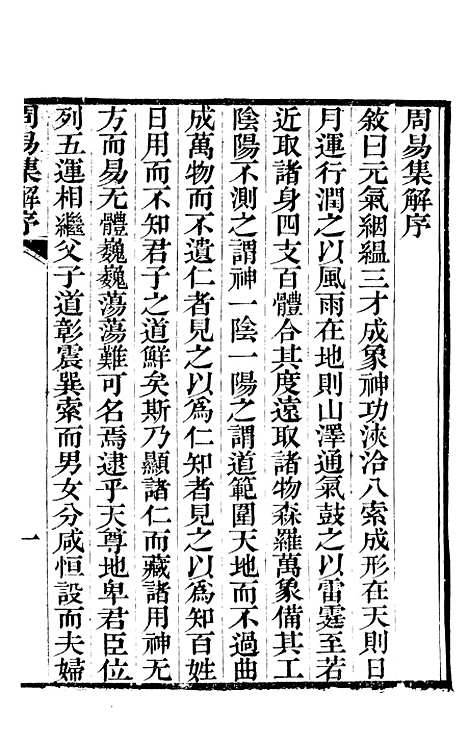 周易集解序
敘曰元氣絪縕三才成象神功浹洽八索成形在天則日
月運行潤之以風雨在地則山澤通氣鼓之以雷霆至若
近取諸身四支百體合其度遠取諸物森羅萬象備其工
陰陽不測之謂神一陰一陽之謂道範圍天地而不過曲
成萬物而不遺仁者見之以爲仁知者見之以爲知百姓
日用而不知君子之道鮮矣斯乃顯諸仁而藏諸用神无
方而易无體巍巍蕩蕩難可名焉逮乎天尊地卑君臣位
列五運相繼父子道彰震巽索而男女分咸恒設而夫婦
周易集解序
一